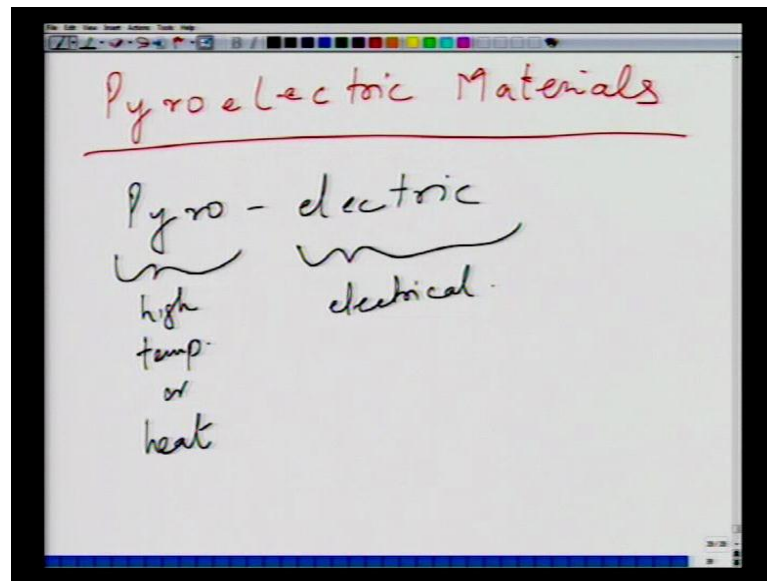 File Edit View Insert Actions Tools Help
B I
Pyroelectric Materials
Pyro - electric
high electrical.
temp.
or
heat